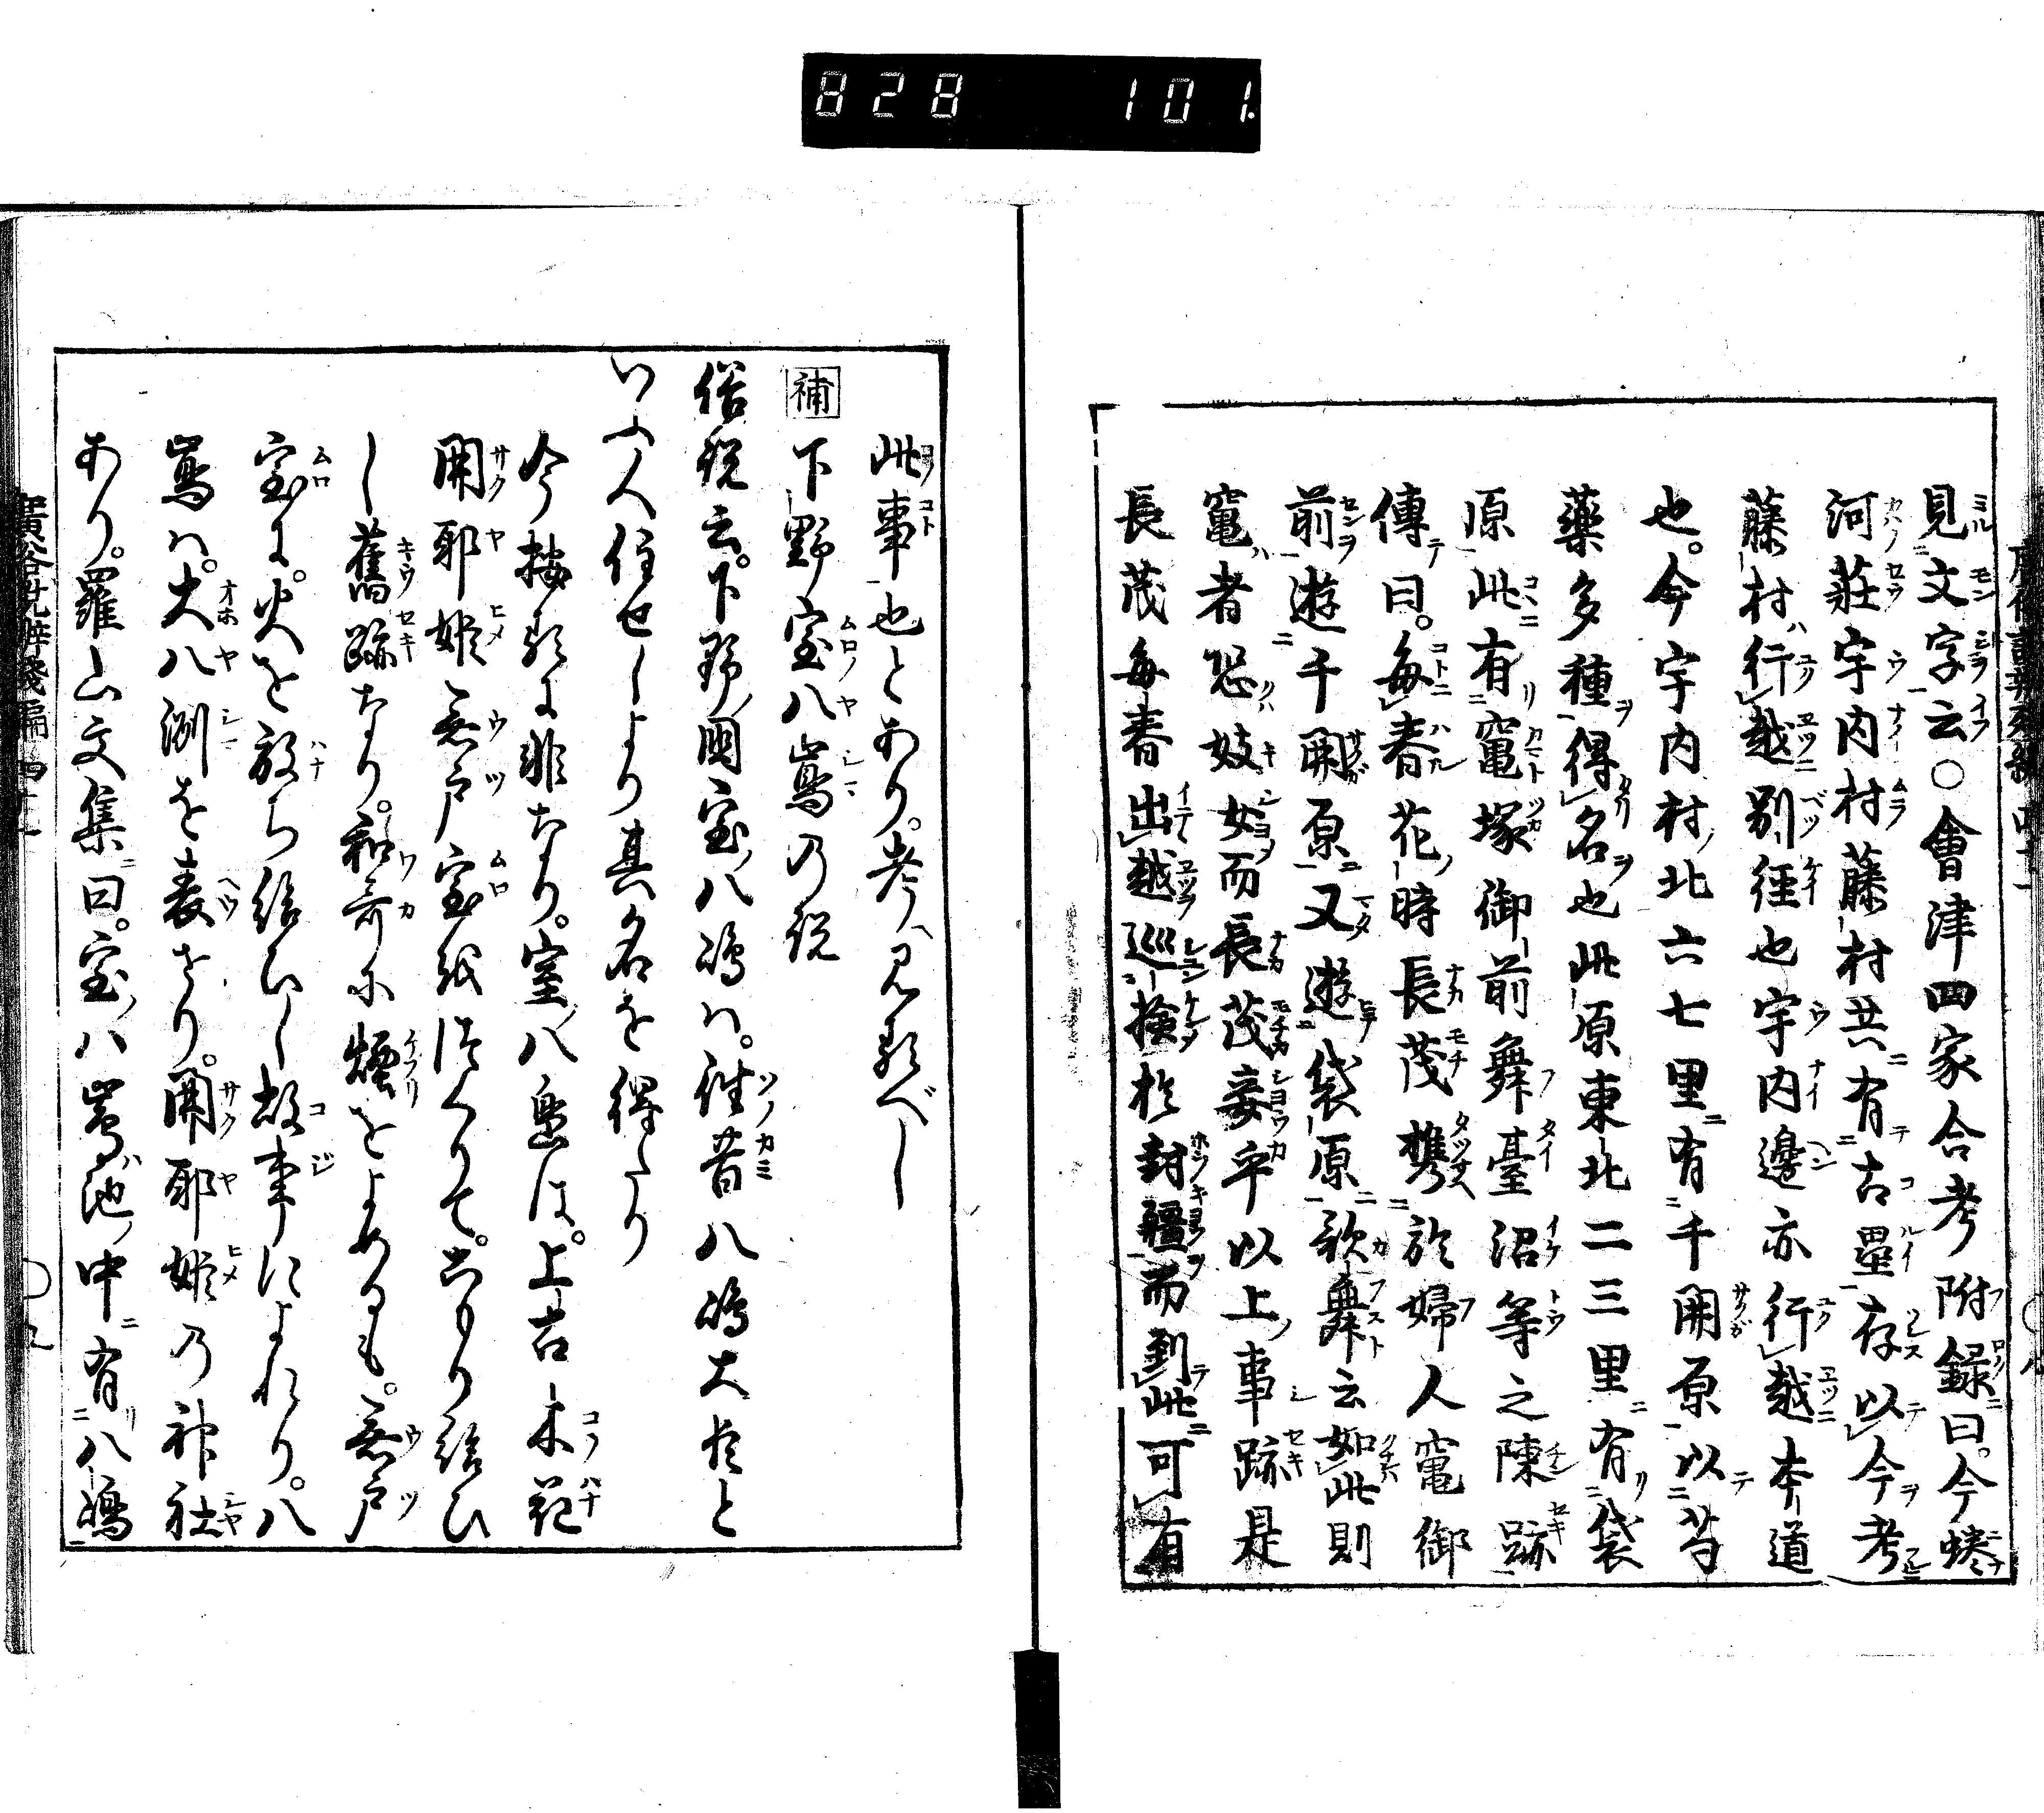 828 101
見文字云○會津四家合考附録曰。今蜷
河莊宇内村藤村共有古壘存以今考
藤村行越別徑也宇内邊亦行越本道
也。今宇内村北六七里有千開原以芍
藥多種得名也此原東北二三里有袋
原此有竈塚御前舞臺沼等之陳跡
傳曰。毎春花時長茂携於婦人竈御
前遊千開原又遊袋原歌舞云如此則
竈者恐妓女而長茂妾乎以上事跡是
長茂毎春出越巡撿於封疆而到此可有
此事也とあり。考へ見るべし
補 下野室八嶌乃説
俗説云。下野國室ノ八嶋ハ。往昔八嶋大夫と
いふ人住せしより其名を得たり
今按るに非なり。室ノ八島は。上古木花
開耶姫無戸室を作くりて。こもり給ひ
し舊跡なり。和哥に煙をよめるも。無戸
室に。火を放ち給ひし故事によれり。八
嶌ハ。大八洲を表せり。開耶姫乃神社
あり。羅山文集曰。室ノ八嶌ハ池ノ中有八嶋
廣俗説辨殘編 四十一